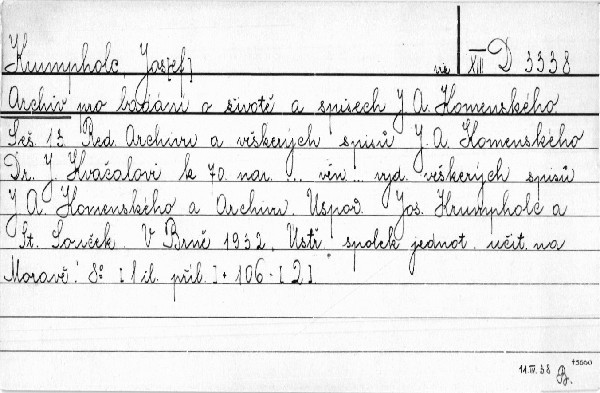 Krumpholc, Jos[ef] viz XIII D 3338
Archiv pro badání o životě a spisech J. A. Komenského
Seš. 13. Red. Archivu a všekerých spisů J. A. Komenského
Dr. J. Kvačalovi k 70. nar. ... věn ... vyd. veškerých spisů
J. A. Komenského a Archivu. Uspoř. Jos. Krumpholc a
St. Souček. V Brně 1932. Ústř. spolek jednot. učit. na
Moravě. 8° [1 il. příl.] + 106 - [2].
11.IV.38 B.